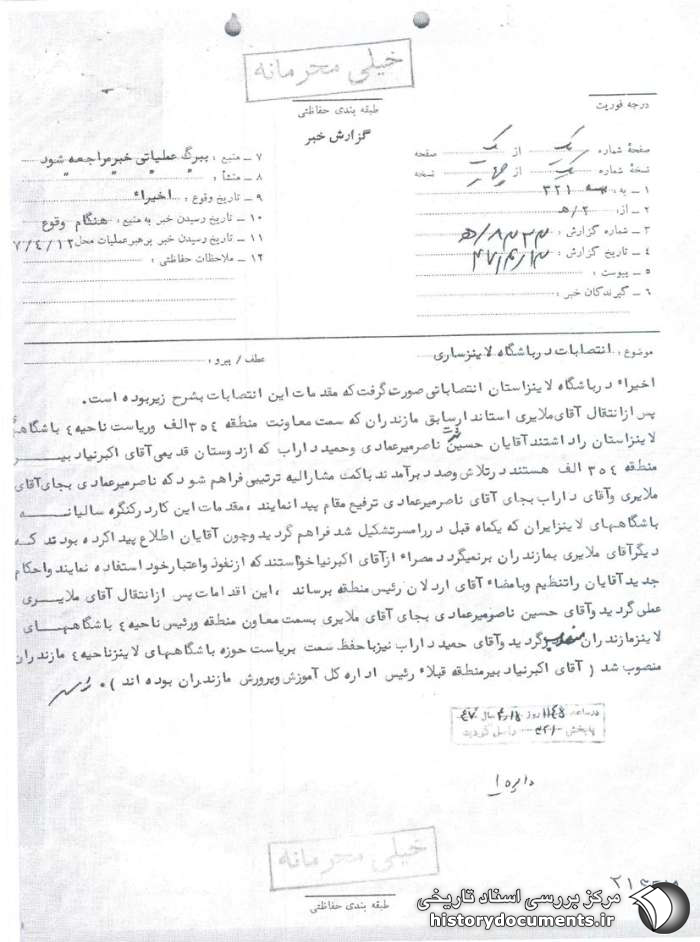 خیلی محرمانه
طبقه بندی حفاظتی
درجه فوریت
گزارش خبر
صفحهٔ شماره یک از یک صفحه
نسخهٔ شماره یک از چهار نسخه
۱ ـ به : ۳۲۱
۲ ـ از : ۲/ ه‍
۳ ـ شماره گزارش :
۴ ـ تاریخ گزارش :
۵ ـ پیوست :
۶ ـ گیرندگان خبر :
۷ ـ منبع : ببرگ عملیاتی خبر مراجعه شود
۸ ـ منشأ :
۹ ـ تاریخ وقوع : اخیراً
۱۰ ـ تاریخ رسیدن خبر به منبع : هنگام وقوع
۱۱ ـ تاریخ رسیدن خبر برهبر عملیات محل ۷/۴/۱۲
۱۲ ـ ملاحظات حفاظتی :
موضوع : انتصابات در باشگاه لاینز ساری
عطف / پیرو :
اخیراً در باشگاه لاینز استان انتصاباتی صورت گرفت که مقدمات این انتصابات بشرح زیر بوده است .
پس از انتقال آقای ملایری استاندار سابق مازندران که سمت معاونت منطقه ۳۵۴ الف وریاست ناحیه ۴ باشگاه
لاینز استان را داشتند آقایان حسین ناصر میرعمادی وحمید داراب که از دوستان قدیمی آقای اکبرنیا دبیر
منطقه ۳۵۴ الف هستند در تلاش وصدد برآمدند باکمک مشارالیه ترتیبی فراهم شود که ناصر میرعمادی بجای آقای
ملایری وآقای داراب بجای آقای ناصر میرعمادی ترفیع مقام پیدا نمایند ، مقدمات این کار در کنگره سالیانه
باشگاههای لاینز ایران که یکماه قبل در رامسر تشکیل شد فراهم گردید وچون آقایان اطلاع پیدا کرده بودند که
دیگر آقای ملایری بمازندران برنمیگردد مصراً از آقای اکبرنیا خواستند که از نفوذ واعتبار خود استفاده نمایند واحکام
جدید آقایان را تنظیم وبامضاء آقای اردلان رئیس منطقه برساند ، این اقدامات پس از انتقال آقای ملایری
عملی گردید وآقای حسین ناصر میرعمادی بجای آقای ملایری بسمت معاون منطقه ورئیس ناحیه ۴ باشگاههای
لاینز مازندران منصوب گردید وآقای حمید داراب نیز باحفظ سمت بریاست حوزه باشگاههای لاینز ناحیه ۴ مازندران
منصوب شد ( آقای اکبرنیا دبیر منطقه قبلاً رئیس اداره کل آموزش وپرورش مازندران بوده اند ) .
در ساعت روز سال ۴۷
بپخش ۳۲۱ واصل گردید
دایره ۱
خیلی محرمانه
طبقه بندی حفاظتی
مرکز بررسی اسناد تاریخی
historydocuments.ir